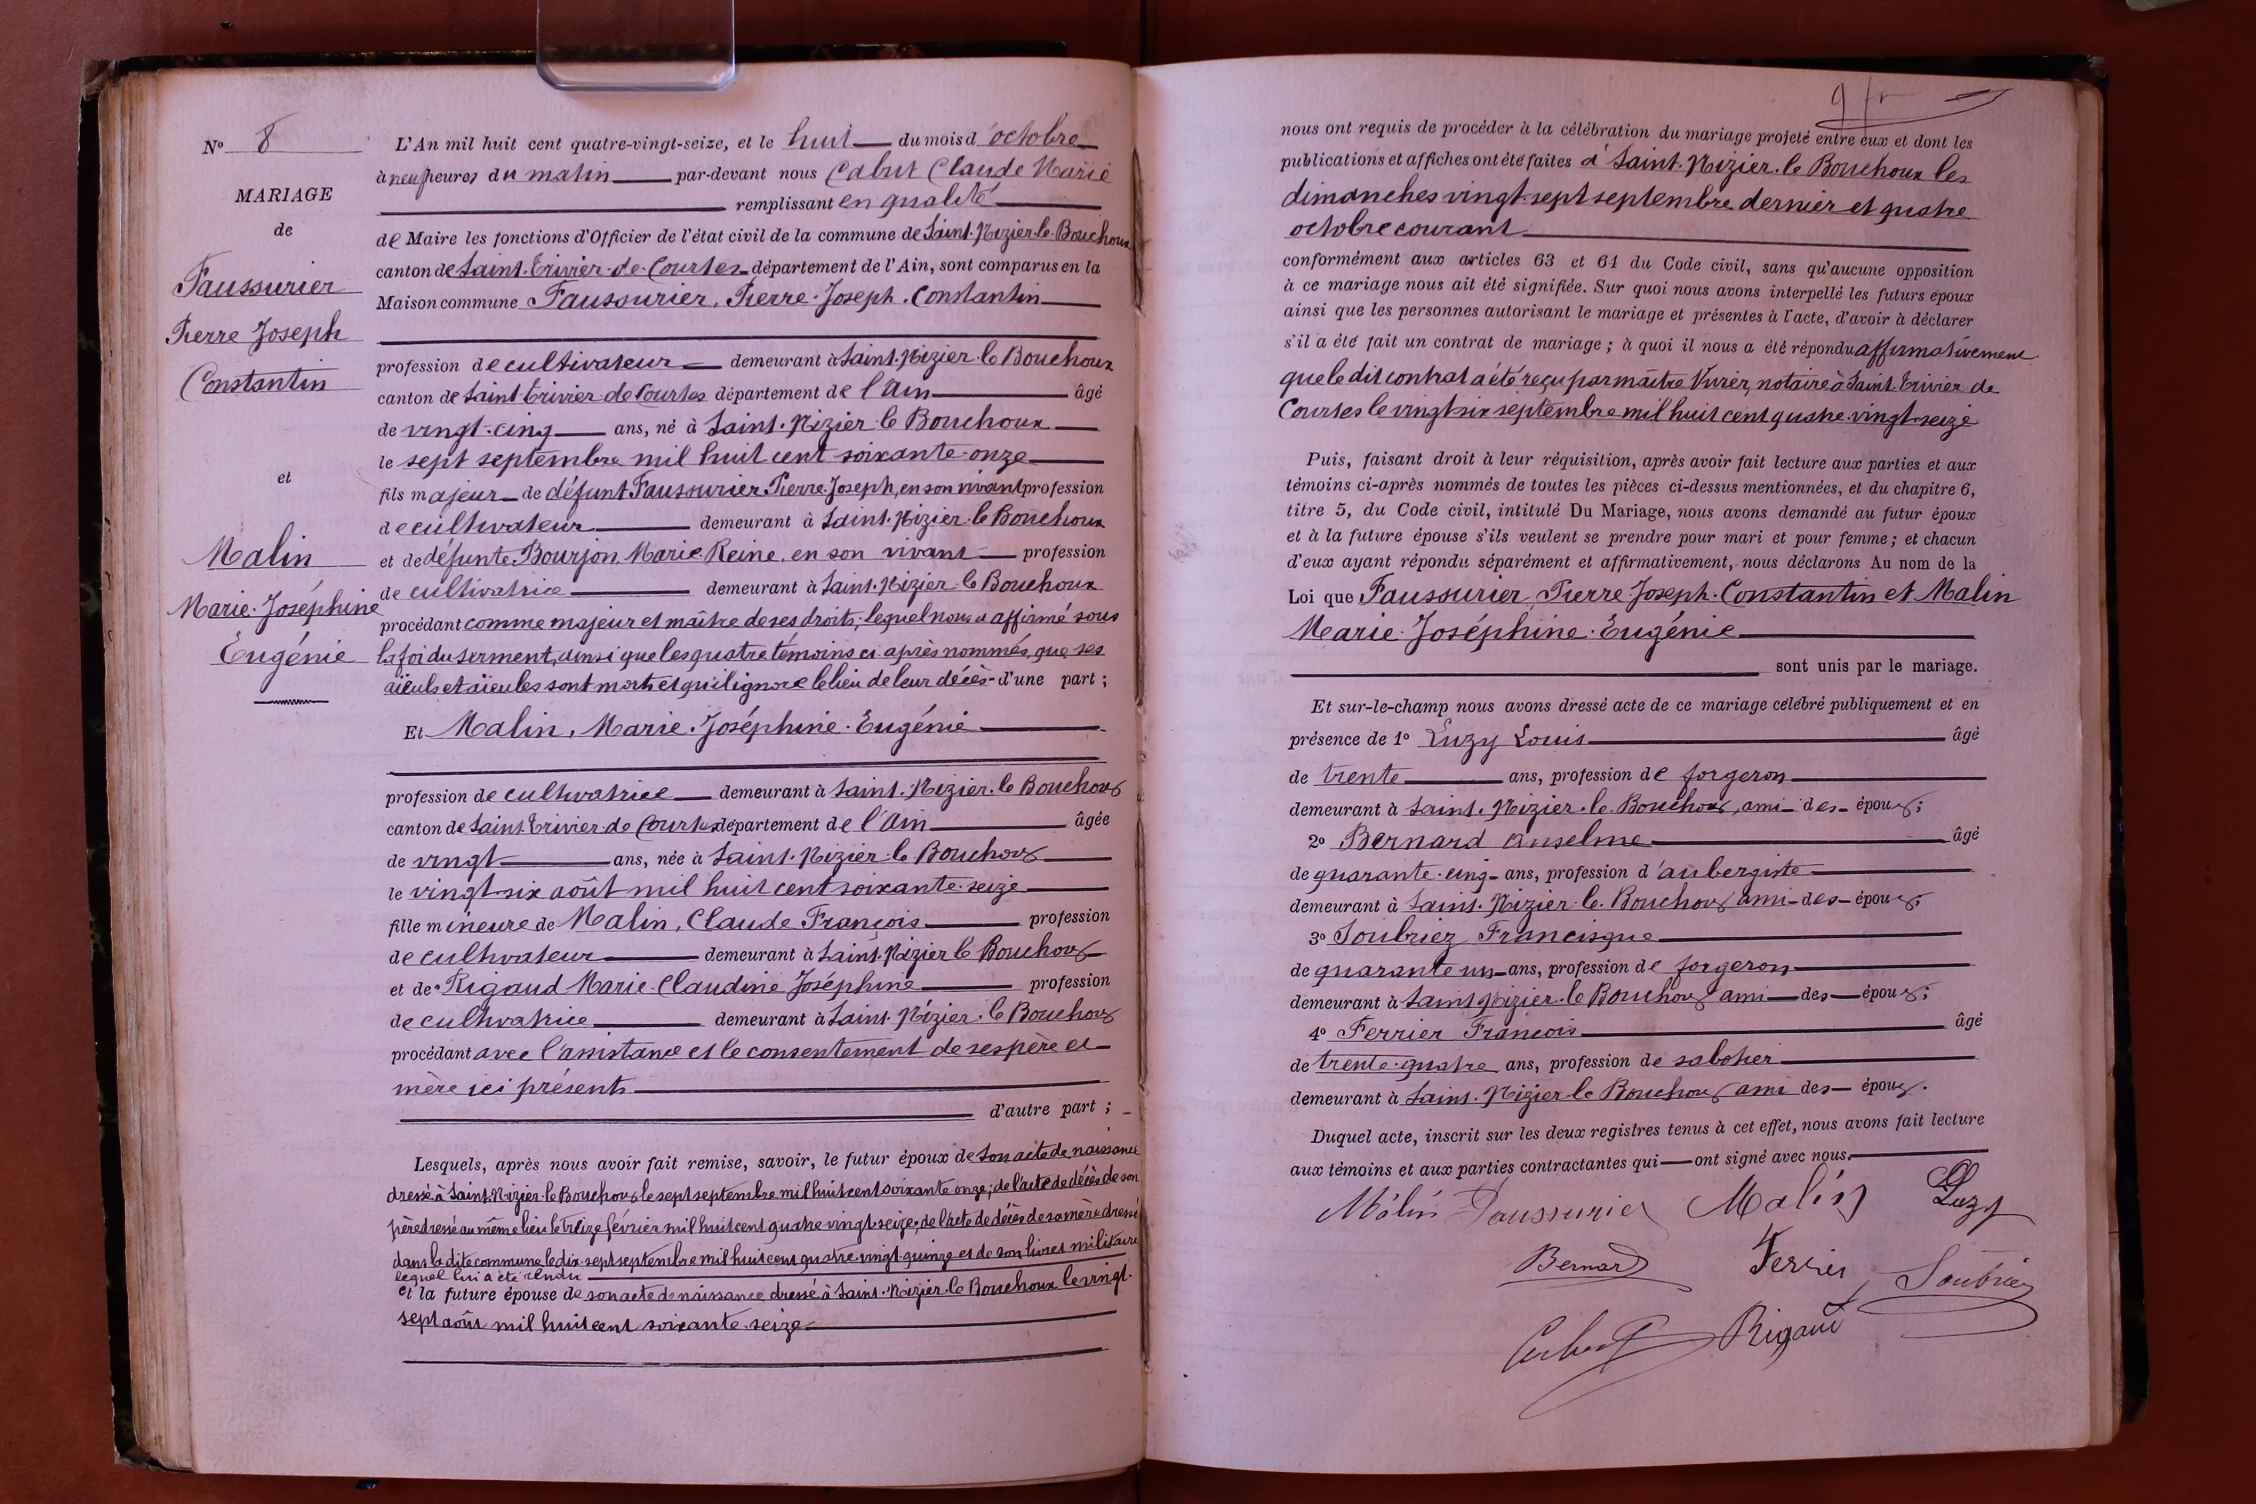 N° 8
MARIAGE
de
Faussurier
Pierre Joseph
Constantin
et
Malin
Marie-Joséphine
Eugénie
L'An mil huit cent quatre-vingt-seize, et le huit du mois d'octobre
à neuf heures du matin par-devant nous Cabut Claude Marie
remplissant en qualité
de Maire les fonctions d'Officier de l'état civil de la commune de Saint-Nizier-le-Bouchoux
canton de Saint-Trivier-de-Courtes département de l'Ain, sont comparus en la
Maison commune Faussurier, Pierre-Joseph-Constantin
profession de cultivateur demeurant à Saint-Nizier-le-Bouchoux
canton de Saint-Trivier-de-Courtes département de l'Ain âgé
de vingt-cinq ans, né à Saint-Nizier-le-Bouchoux
le sept septembre mil huit cent soixante-onze
fils majeur de défunt Faussurier Pierre-Joseph, en son vivant profession
de cultivateur demeurant à Saint-Nizier-le-Bouchoux
et de défunte Bourjon Marie-Reine, en son vivant profession
de cultivatrice demeurant à Saint-Nizier-le-Bouchoux
procédant comme majeur et maître de ses droits; lequel nous a affirmé sous
la foi du serment, ainsi que les quatre témoins ci après nommés, que ses
aïeuls et aïeules sont morts et qu'il ignore le lieu de leur décès - d'une part;
Et Malin, Marie-Joséphine-Eugénie
profession de cultivatrice demeurant à Saint-Nizier-le-Bouchoux
canton de Saint-Trivier-de-Courtes département de l'Ain âgée
de vingt ans, née à Saint-Nizier-le-Bouchoux
le vingt-six août mil huit cent soixante-seize
fille mineure de Malin, Claude François profession
de cultivateur demeurant à Saint-Nizier-le-Bouchoux
et de Rigaud Marie-Claudine Joséphine profession
de cultivatrice demeurant à Saint-Nizier-le-Bouchoux
procédant avec l'assistance et le consentement de ses père et
mère ici présents
d'autre part;
Lesquels, après nous avoir fait remise, savoir, le futur époux de son acte de naissance
dressé à Saint-Nizier-le-Bouchoux le sept septembre mil huit cent soixante onze; de l'acte de décès de son
père dressé au même lieu le treize février mil huit cent quatre vingt-seize; de l'acte de décès de sa mère dressé
dans la dite commune le dix-sept septembre mil huit cent quatre-vingt-quinze et de son livret militaire
lequel lui a été rendu
et la future épouse de son acte de naissance dressé à Saint-Nizier-le-Bouchoux le vingt-
sept août mil huit cent soixante-seize
nous ont requis de procéder à la célébration du mariage projeté entre eux et dont les
publications et affiches ont été faites à Saint-Nizier-le-Bouchoux les
dimanches vingt-sept septembre dernier et quatre
octobre courant
conformément aux articles 63 et 64 du Code civil, sans qu'aucune opposition
à ce mariage nous ait été signifiée. Sur quoi nous avons interpellé les futurs époux
ainsi que les personnes autorisant le mariage et présentes à l'acte, d'avoir à déclarer
s'il a été fait un contrat de mariage; à quoi il nous a été répondu affirmativement
que le dit contrat a été reçu par maître Vivier, notaire à Saint-Trivier de
Courtes le vingt six septembre mil huit cent quatre-vingt-seize
Puis, faisant droit à leur réquisition, après avoir fait lecture aux parties et aux
témoins ci-après nommés de toutes les pièces ci-dessus mentionnées, et du chapitre 6,
titre 5, du Code civil, intitulé Du Mariage, nous avons demandé au futur époux
et à la future épouse s'ils veulent se prendre pour mari et pour femme; et chacun
d'eux ayant répondu séparément et affirmativement, nous déclarons Au nom de la
Loi que Faussurier, Pierre-Joseph-Constantin et Malin
Marie-Joséphine-Eugénie
sont unis par le mariage.
Et sur-le-champ nous avons dressé acte de ce mariage célébré publiquement et en
présence de 1° Luzy Louis âgé
de trente ans, profession de forgeron
demeurant à Saint-Nizier-le-Bouchoux, ami des époux;
2° Bernard Anselme âgé
de quarante-cinq ans, profession d'aubergiste
demeurant à Saint-Nizier-le-Bouchoux ami-des-époux;
3° Soubriez Francisque
de quarante un ans, profession de forgeron
demeurant à Saint-Nizier-le-Bouchoux ami des époux;
4° Ferrier François âgé
de trente-quatre ans, profession de sabotier
demeurant à Saint-Nizier-le-Bouchoux ami des époux.
Duquel acte, inscrit sur les deux registres tenus à cet effet, nous avons fait lecture
aux témoins et aux parties contractantes qui ont signé avec nous.
Malin Faussurier Malin Luzy
Bernard Ferrier Soubriez
Cabut Rigaud